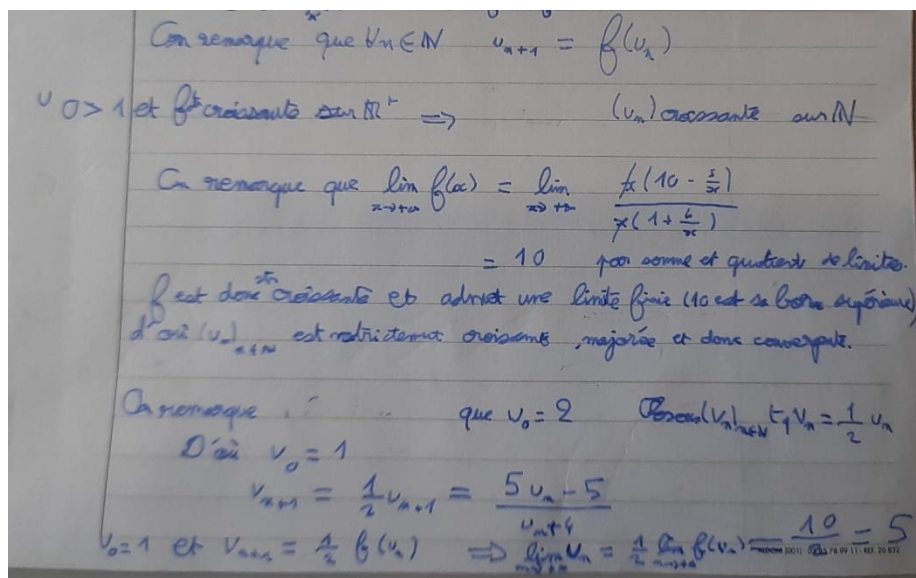 On remarque que ∀n ∈ ℕ u_{n+1} = f(u_n)
u 0 > 1 et f croissante sur ℝ⁺ ⟹ (u_n) croissante sur ℕ
On remarque que lim_{x→+∞} f(x) = lim_{x→+∞} x(10 - 5/x) / x(1 + 4/x)
= 10 par somme et quotient de limites.
f est donc croissante et admet une limite finie (10 est sa borne supérieure)
d'où (u_n)_{n∈ℕ} est strictement croissante, majorée et donc convergente.
On remarque que u_0 = 2 Posons (V_n)_{n∈ℕ} tq V_n = 1/2 u_n
D'où v_0 = 1
v_{n+1} = 1/2 u_{n+1} = (5u_n - 5) / (u_n + 4)
v_0 = 1 et v_{n+1} = 1/2 f(u_n) ⟹ lim_{n→+∞} v_n = 1/2 lim f(u_n) = 10/2 = 5